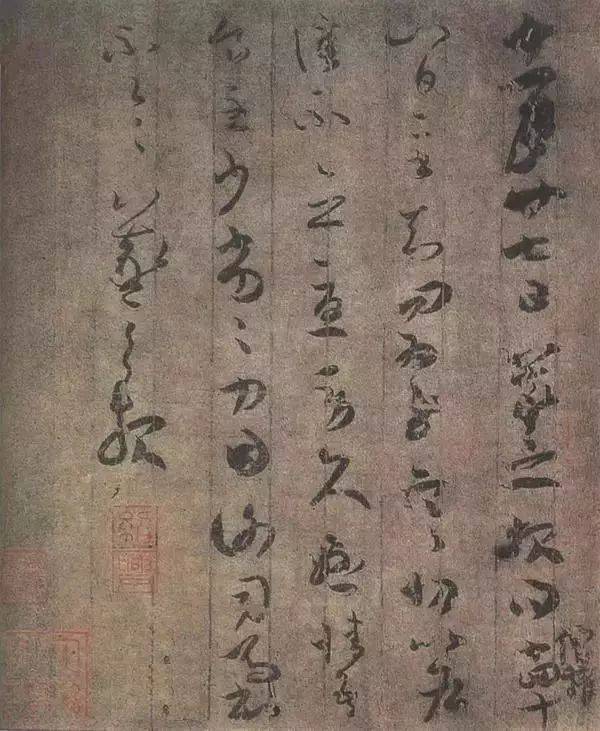 十一月廿七日羲之報得十四十
八日二書知問為慰寒切比各
佳不念憂勞久懸情吾
食至少劣劣力因謝司馬書
不一一羲之報
僧權